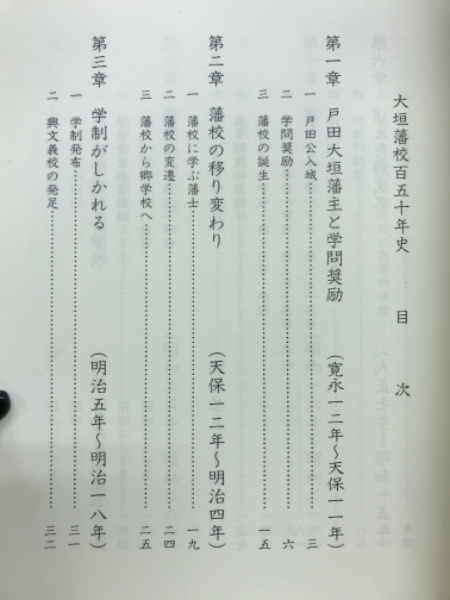 大垣藩校百五十年史 目次
第一章 戸田大垣藩主と学問奨励 （寛永一二年～天保一一年）
一 戸田公入城…………三
二 学問奨励…………六
三 藩校の誕生…………一五
第二章 藩校の移り変わり （天保一二年～明治四年）
一 藩校に学ぶ藩士…………一九
二 藩校の変遷…………二四
三 藩校から郷学校へ…………二五
第三章 学制がしかれる （明治五年～明治一八年）
一 学制発布…………三一
二 興文義校の発足…………三二